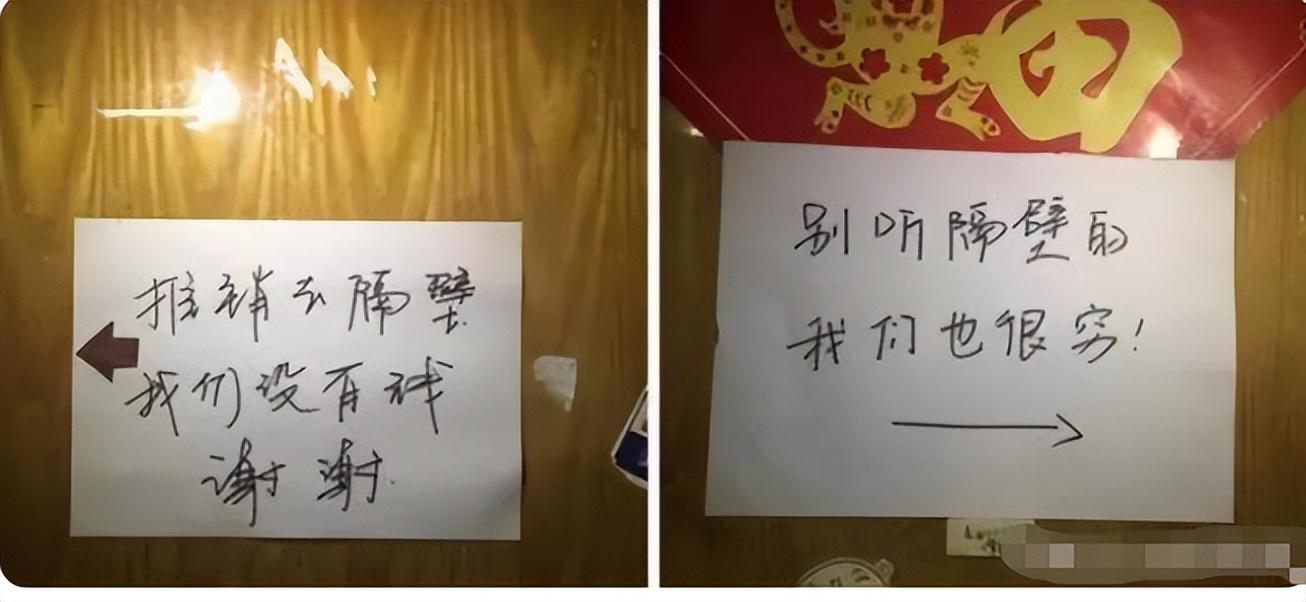 推销去隔壁
我们没有钱
谢谢
别听隔壁的
我们也很穷！